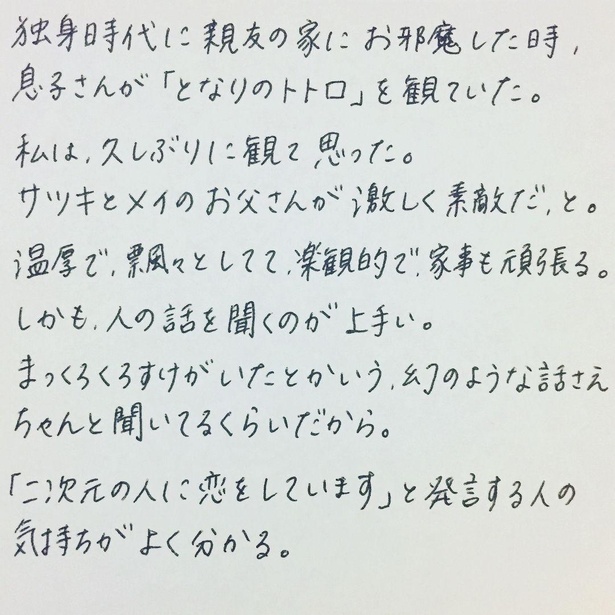 独身時代に親友の家にお邪魔した時,
息子さんが「となりのトトロ」を観ていた。
私は,久しぶりに観て思った。
サツキとメイのお父さんが激しく素敵だ,と。
温厚で,飄々としてて,楽観的で,家事も頑張る。
しかも,人の話を聞くのが上手い。
まっくろくろすけがいたとかいう,幻のような話さえ
ちゃんと聞いてるくらいだから。
「二次元の人に恋をしています」と発言する人の
気持ちがよく分かる。